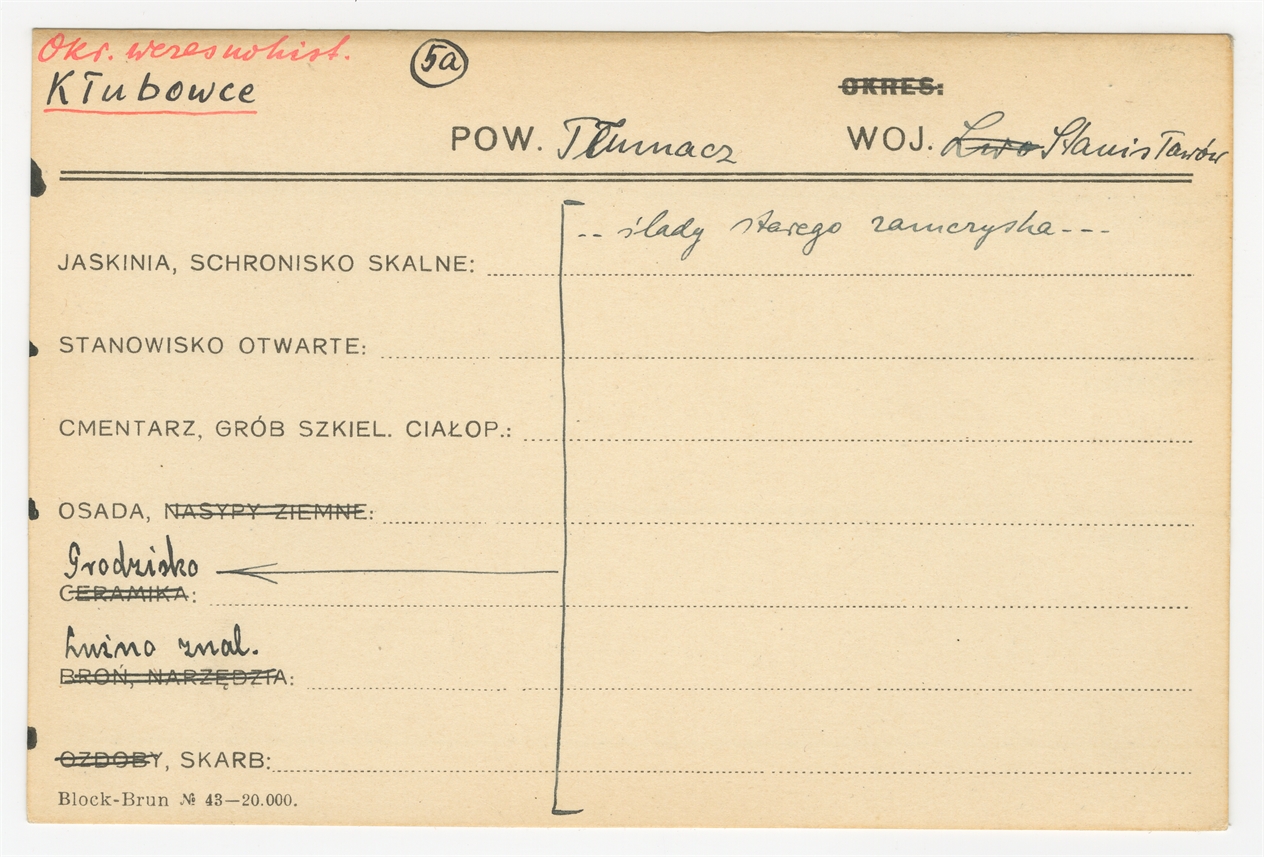 Okr. wczesnohist.
Kłubowce
5a
OKRES:
POW. Tłumacz WOJ. Lwo Stanisławów
.. ślady starego zamczyska---
JASKINIA, SCHRONISKO SKALNE:
STANOWISKO OTWARTE:
CMENTARZ, GRÓB SZKIEL. CIAŁOP.:
OSADA, NASYPY ZIEMNE:
Grodzisko
CERAMIKA:
Luźno znal.
BROŃ, NARZĘDZIA:
OZDOBY, SKARB:
Block-Brun № 43—20.000.